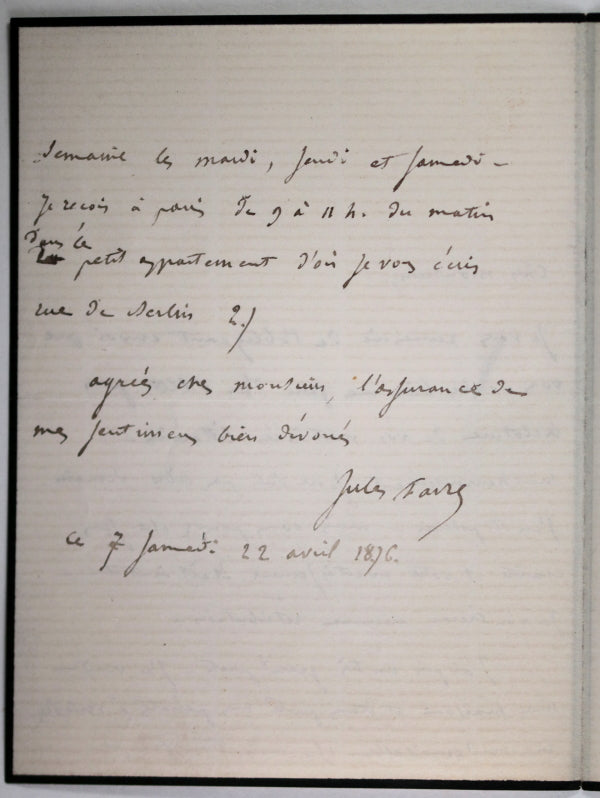 Semaine les mardi, jeudi et samedi –
je reçois à paris de 9 à 11 h. du matin
dans le
petit appartement d'où je vous écris
rue de Berlin 2.)
agréés cher monsieur, l'assurance de
mes sentimens bien dévoués
Jules Favre
ce samedi 22 avril 1876.